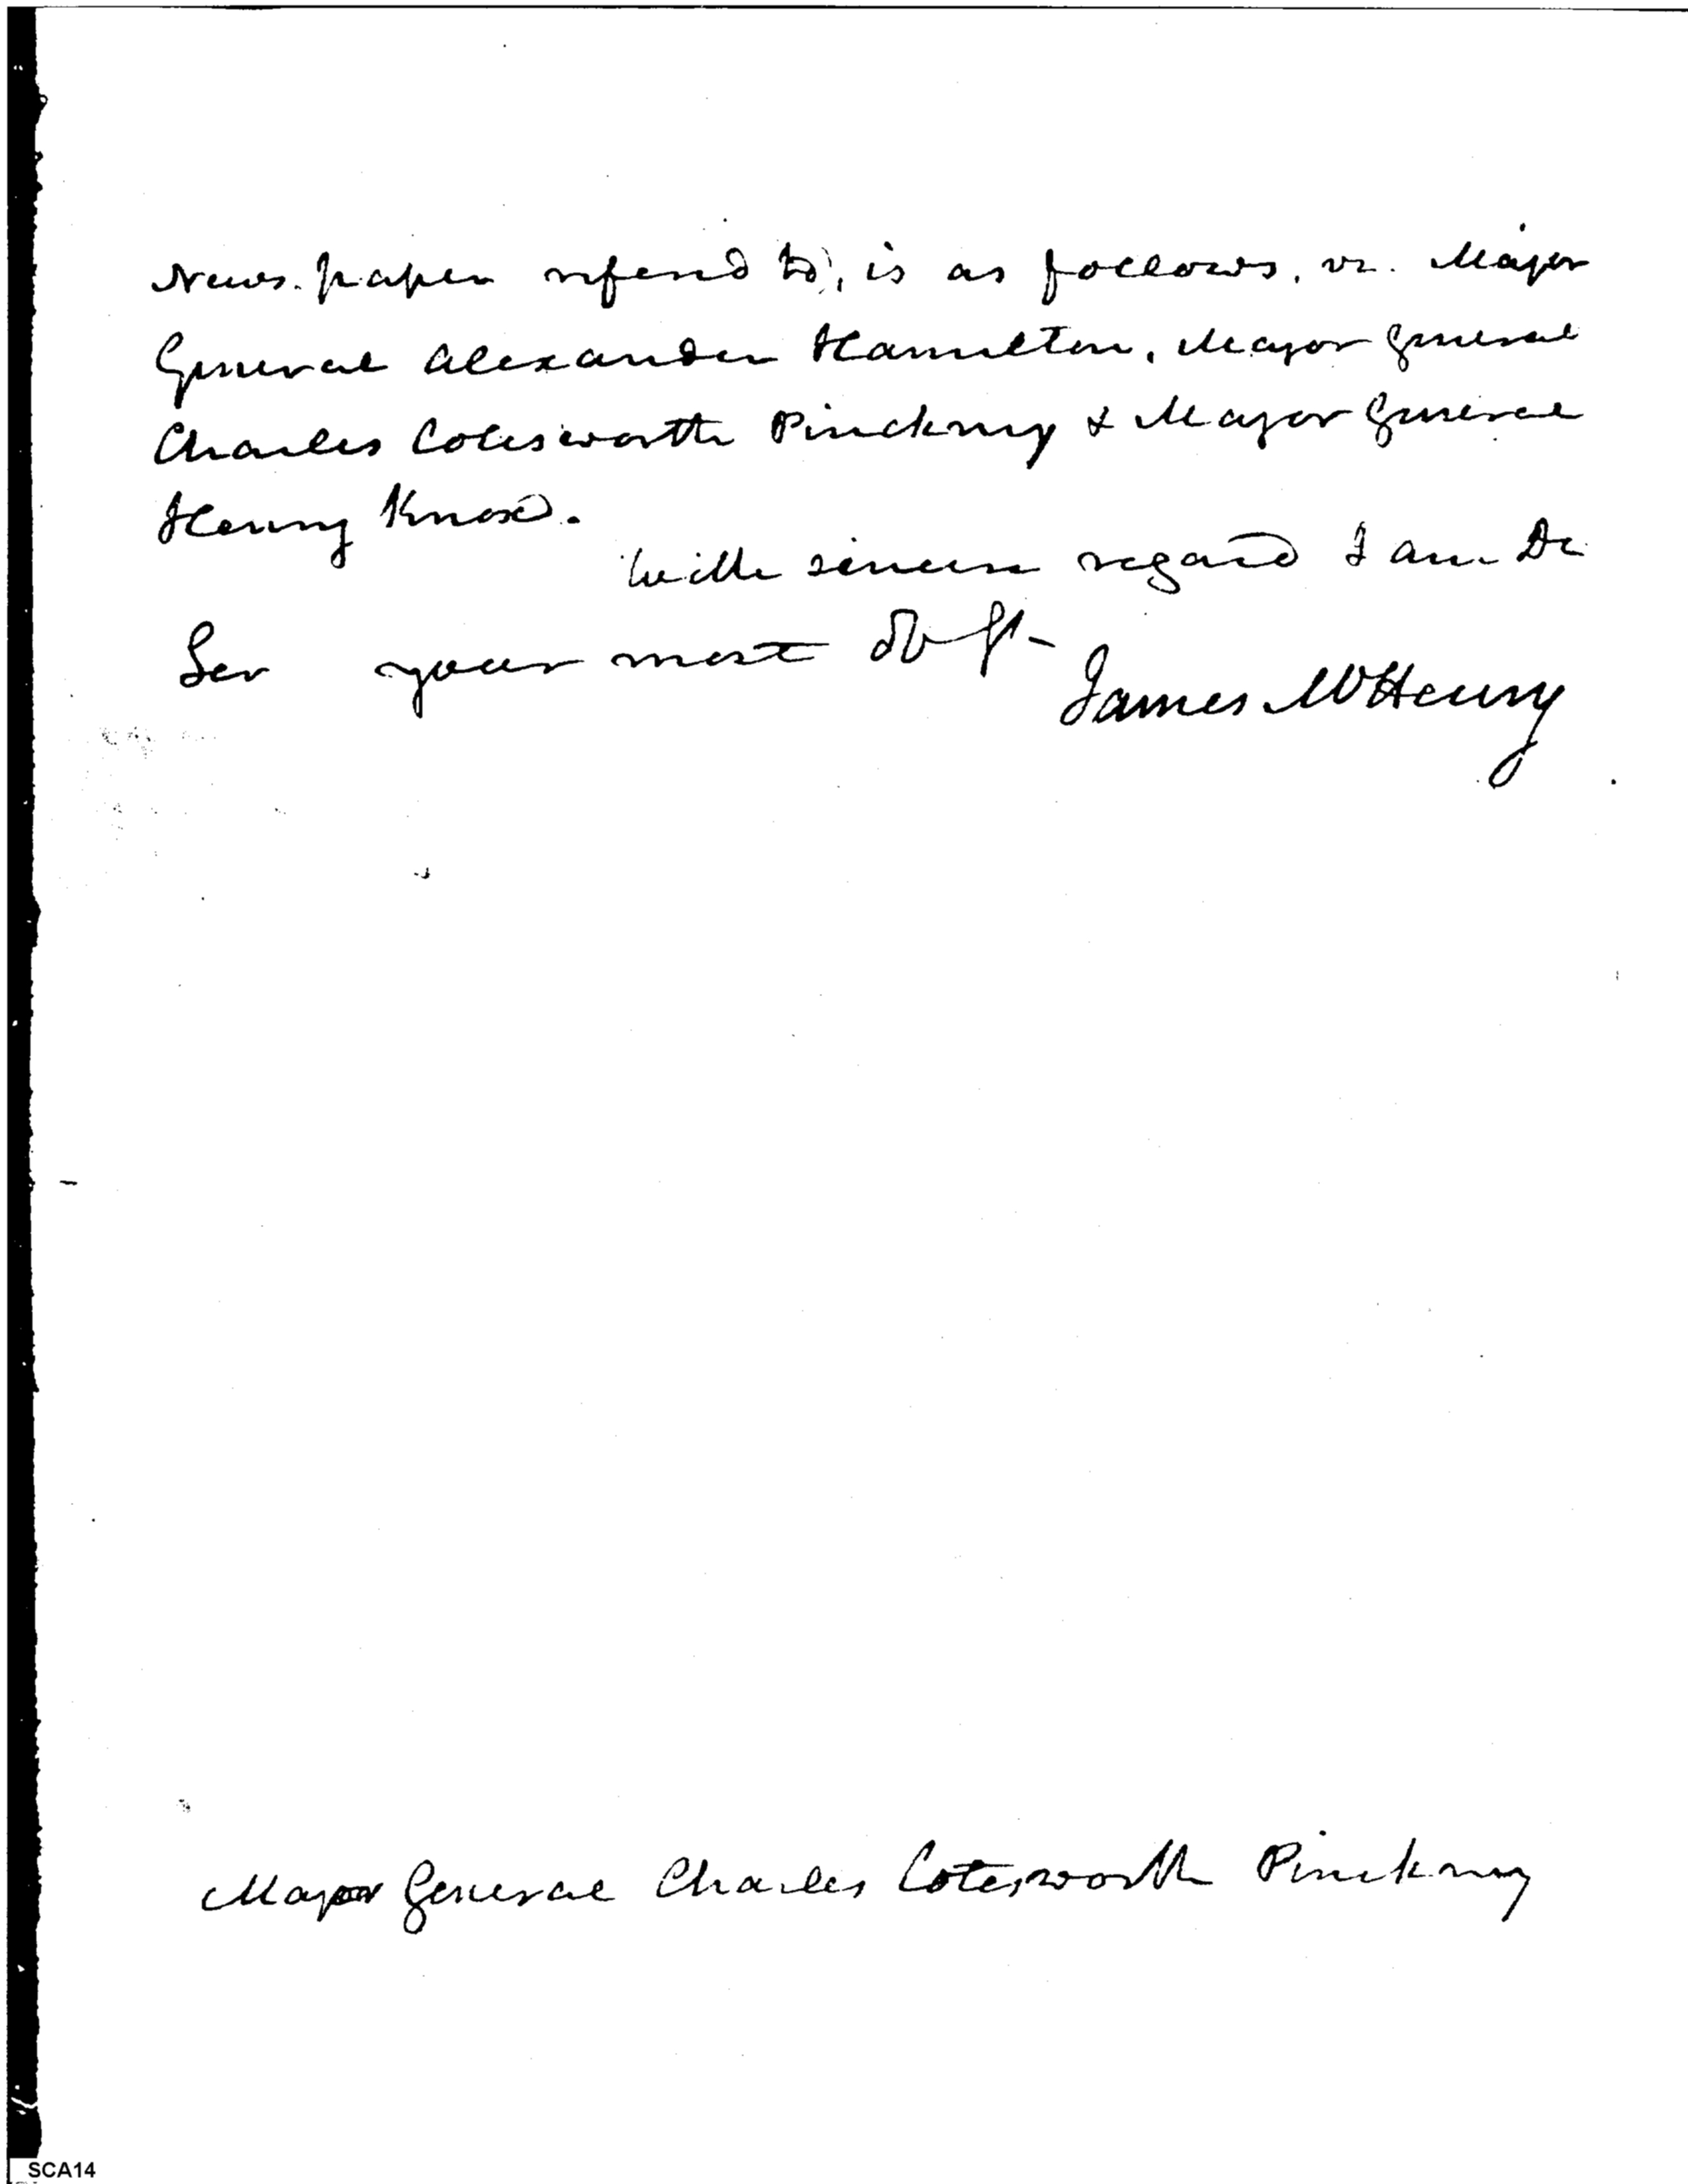 News-paper referred to, is as follows. viz. Major
General Alexander Hamilton, Major General
Charles Cotesworth Pinckney & Major General
Henry Knox.
With sincere regard I am Dr
Sir your most Ob St
James McHenry
Major General Charles Cotesworth Pinckney
SCA14